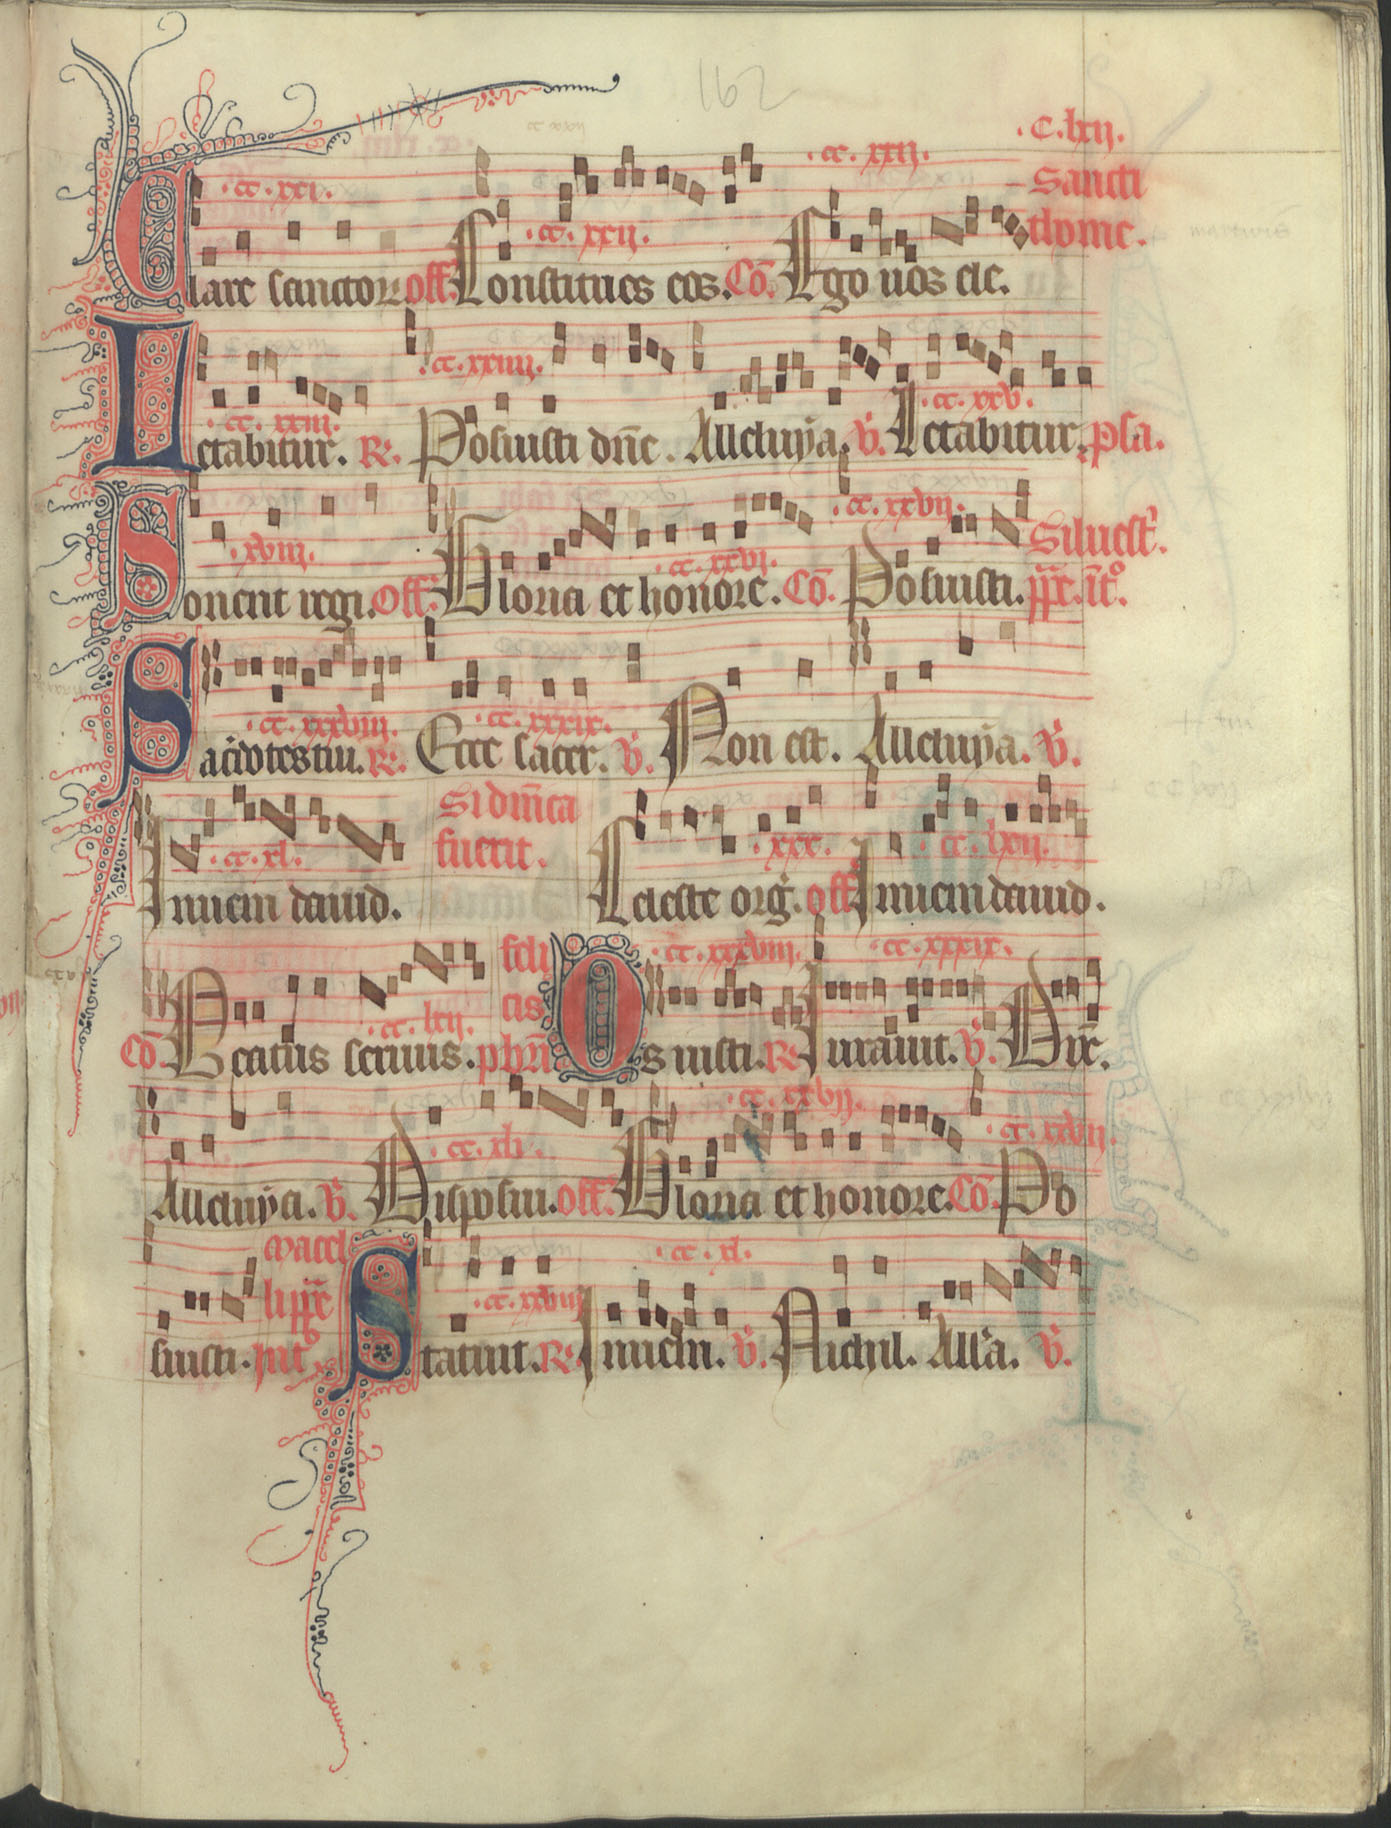 162
.c.lxij.
.cc.xxi. .cc.xxij. .cc.xxij. Sancti thome.
Clare sanctor. off. Constitues eos. Cō. Ego uos ele.
.cc.xxiii. .cc.xxiiii. .cc.xxv.
Letabitur. R. Posuisti dñe. Alleluya. V. Letabitur. psa.
.xviii. .cc.xxvi. .cc.xxvij. Siluest'.
Ponent regi. Off. Gloria et honore. Cō. Posuisti. pp̄e. it°.
.cc.xxxviii. .cc.xxxix.
Sac̄dotes tui. R. Ecce sacer. V. Non est. Alleluya. V.
.cc.xl. Si dn̄ica fuerit. .xxx. .cc.lxij.
Inueni dauid. Celeste org. off. Inueni dauid.
.cc.lxij. feli cis .cc.xxxviii. .cc.xxxix.
Cō. Beatus seruus. pbr̄i Os iusti. R. Iurauit. V. Dix̄.
.cc.xli. .cc.xxvij. .cc.xxvij.
Alleluya. V. Disposui. off. Gloria et honore. Cō. Po
Marcelli pp̄e .cc.xxviii .cc.xl.
suisti. Int Statuit. R. Inueni. V. Nichil. All'a. V.